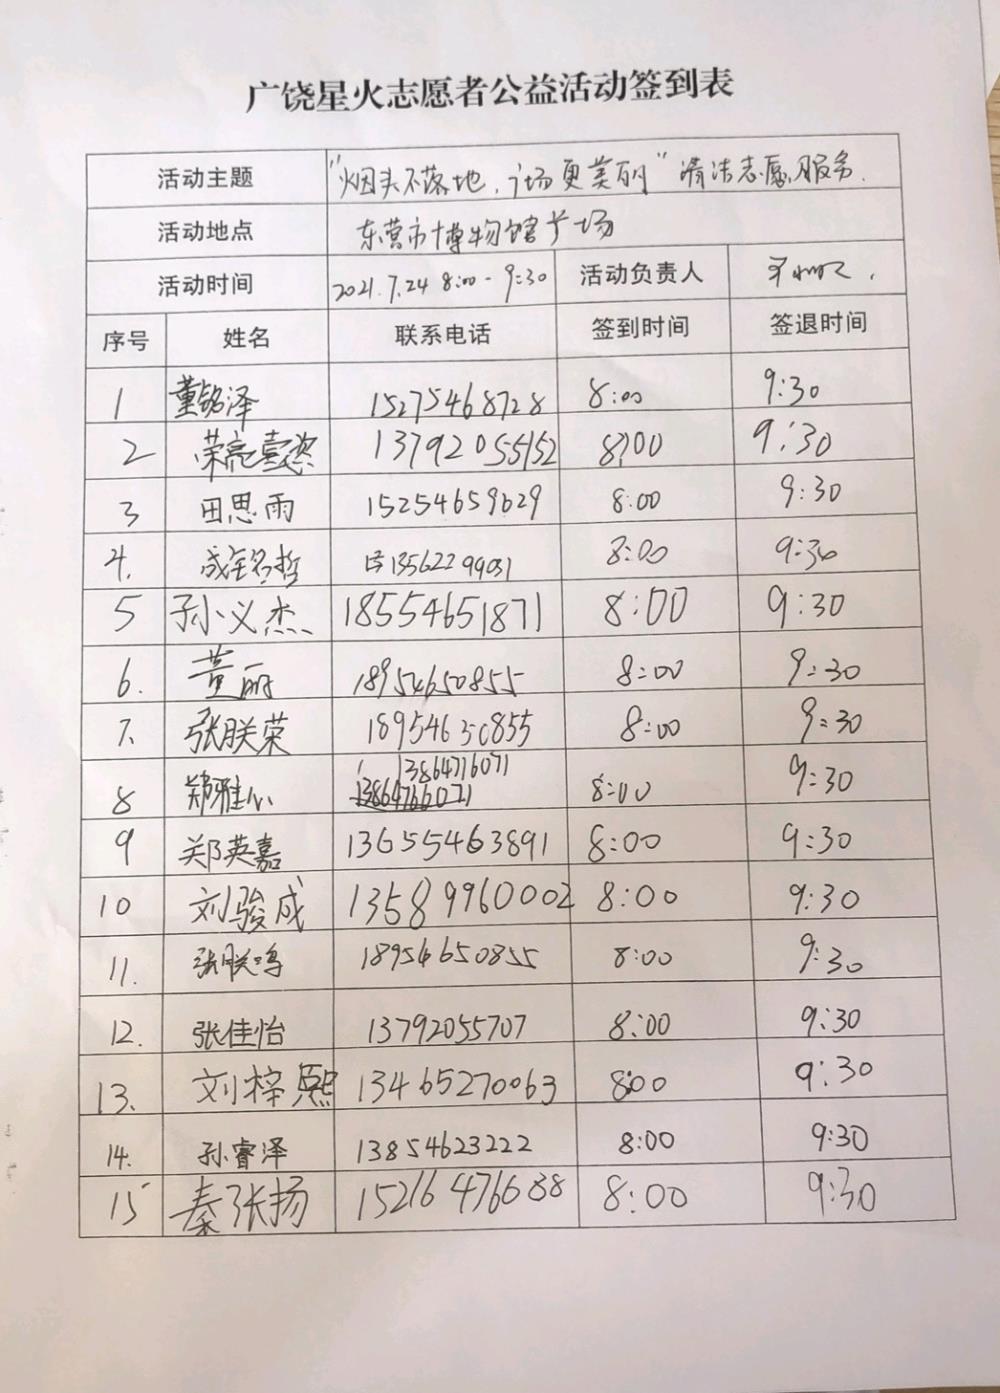 广饶星火志愿者公益活动签到表
活动主题 "烟头不落地，广场更美丽"清洁志愿服务.
活动地点 东营市博物馆广场
活动时间 2021.7.24 8:00-9:30 活动负责人
序号 姓名 联系电话 签到时间 签退时间
1 董铭泽 15275468728 8:00 9:30
2 荣亮 13792055152 8:00 9:30
3 田思雨 15254659629 8:00 9:30
4. 成铭哲 13562299031 8:00 9:30
5 孙义杰 18554651871 8:00 9:30
6. 黄丽 18954650855 8:00 9:30
7. 张朕荣 18954650855 8:00 9:30
13864716071
8 郑雅心 8:00 9:30
9 郑英嘉 13655463891 8:00 9:30
10 刘骏成 13589960002 8:00 9:30
11. 张朕鸣 18954650855 8:00 9:30
12. 张佳怡 13792055707 8:00 9:30
13. 刘梓熙 13465270063 8:00 9:30
14. 孙睿泽 13854623222 8:00 9:30
15 秦张扬 15216476688 8:00 9:30